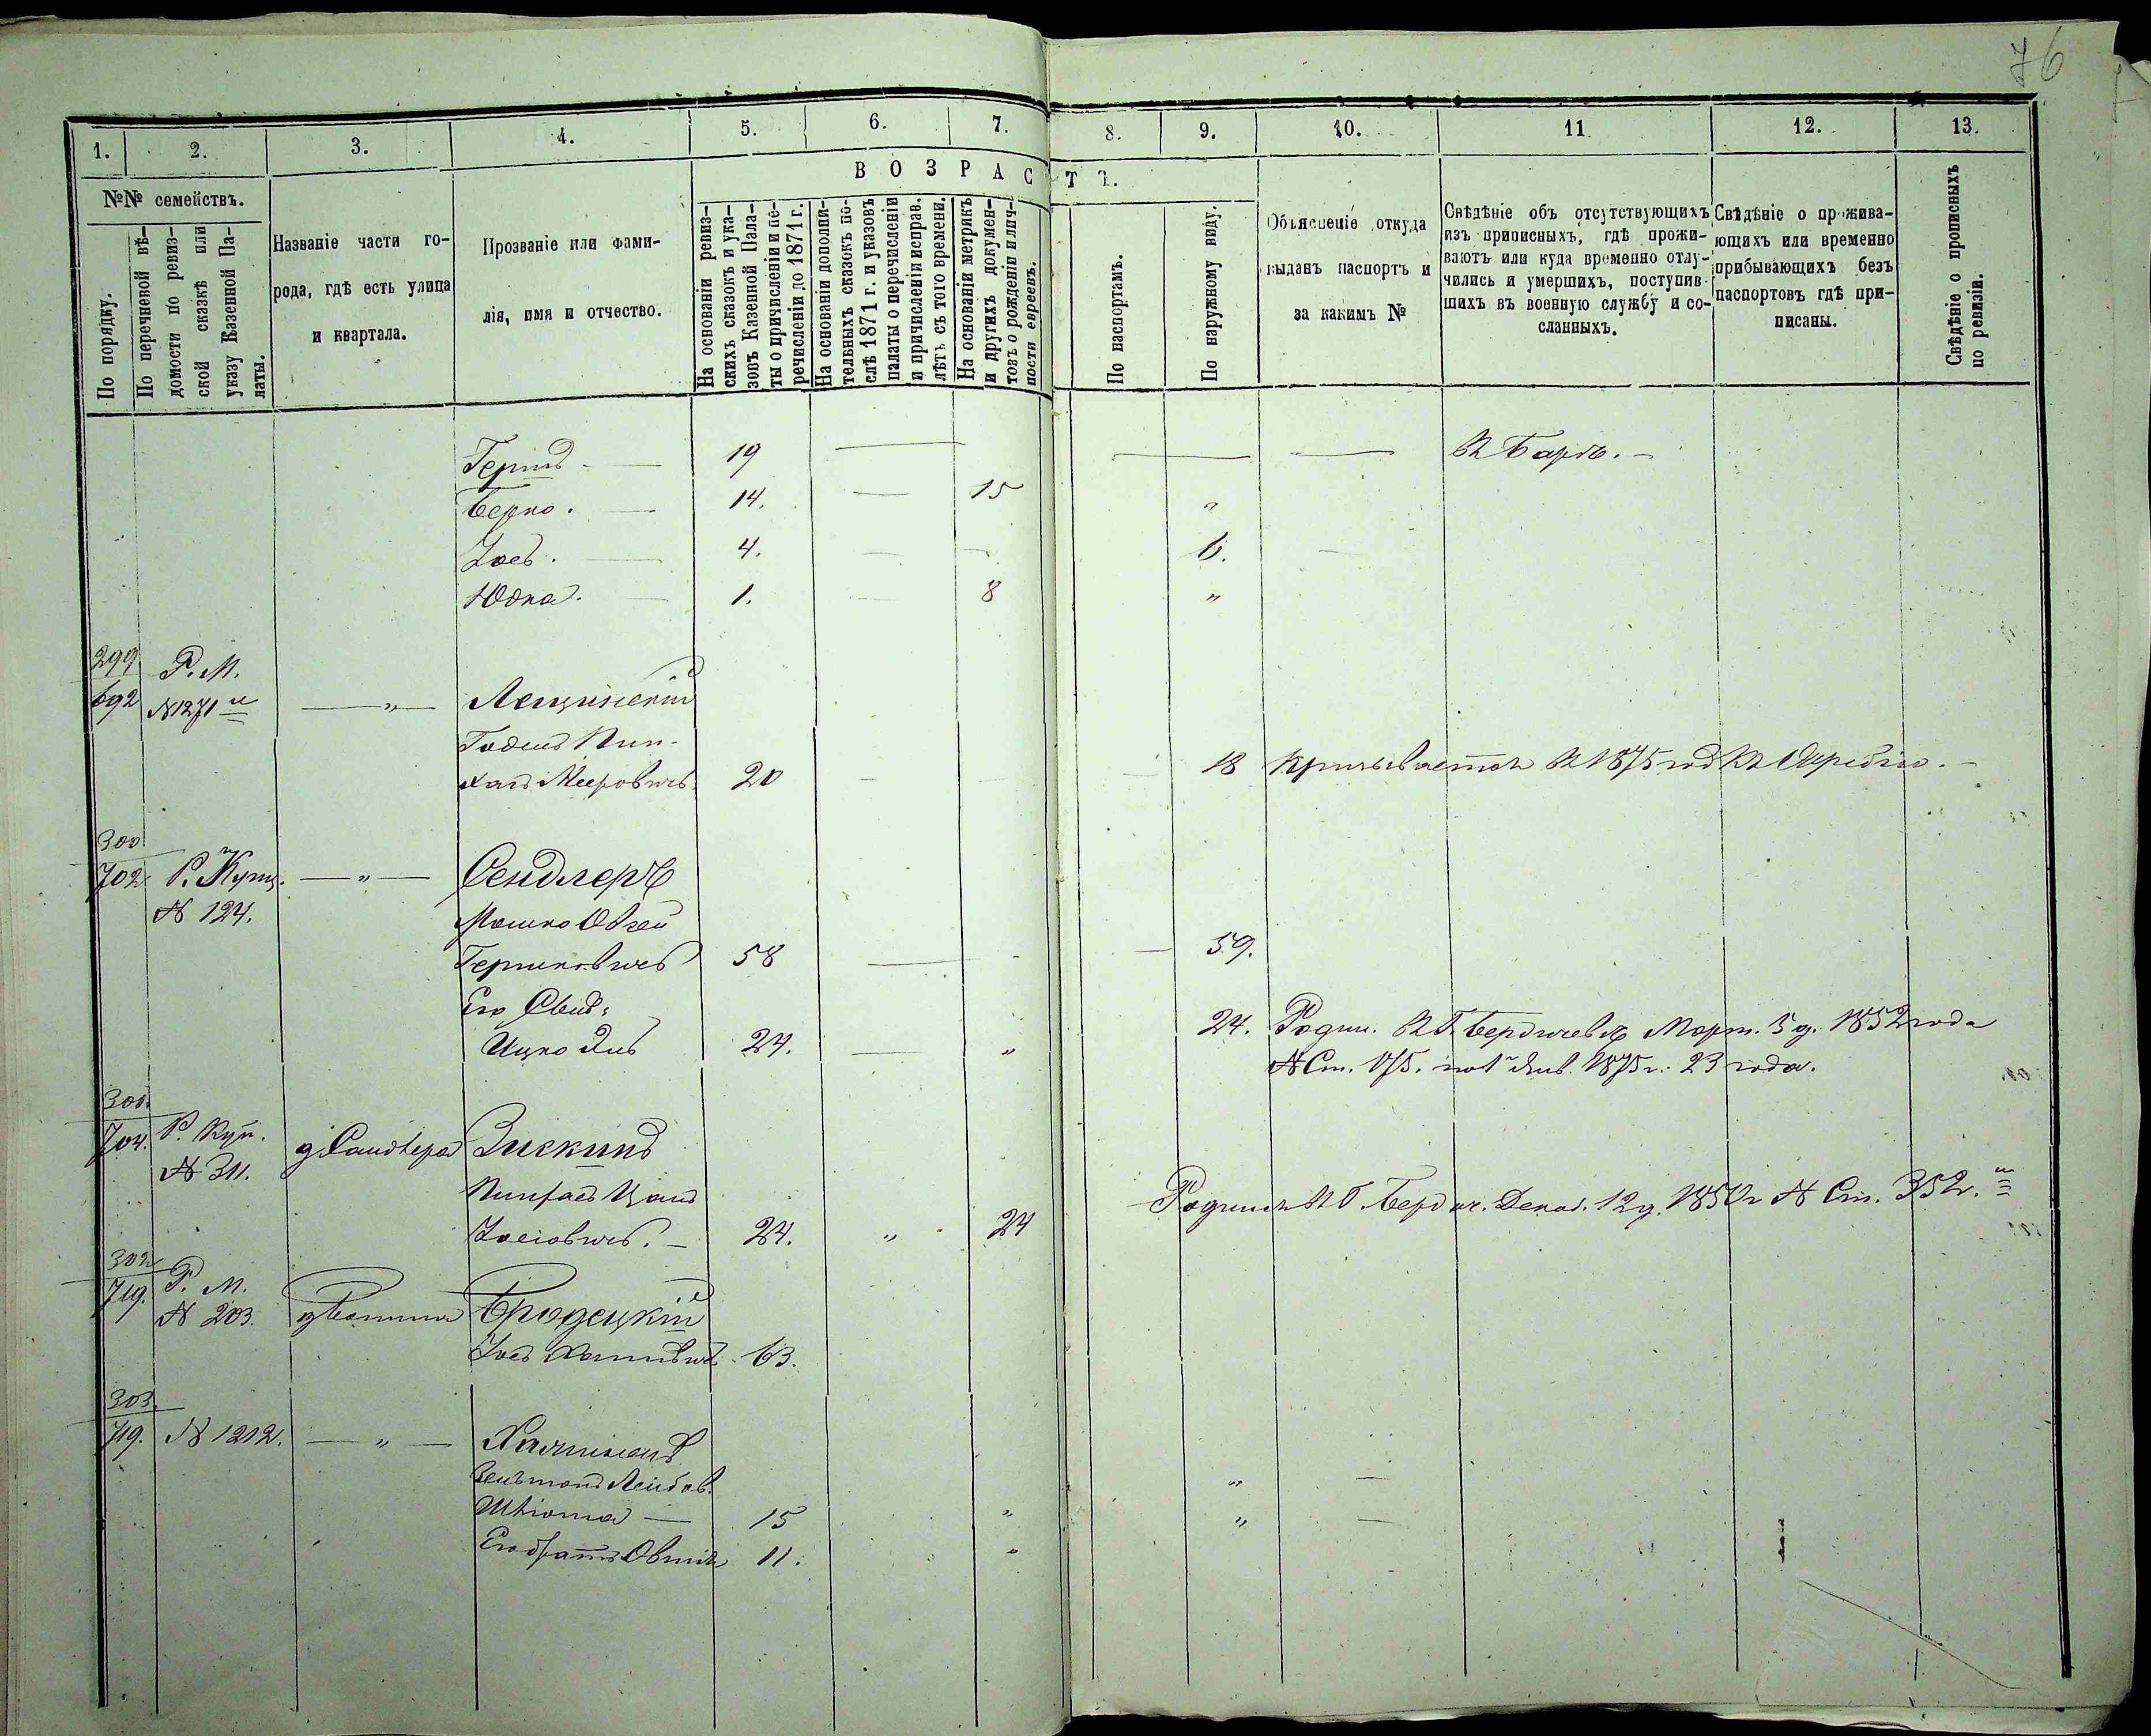 76
1. 2. 3. 4. 5. 6. 7. 8. 9. 10. 11. 12. 13.
ВОЗРАСТЪ.
№№ семействъ.
По порядку.
По перечневой вѣ-
домости по ревиз-
ской сказкѣ или
указу Казенной Па-
латы.
Названіе части го-
рода, гдѣ есть улица
и квартала.
Прозваніе или фами-
лія, имя и отчество.
На основаніи ревиз-
скихъ сказокъ и ука-
зовъ Казенной Пала-
ты о причисленіи и пе-
речисленіи до 1871 г.
На основаніи дополни-
тельныхъ сказокъ по-
слѣ 1871 г. и указовъ
палаты о перечисленіи
и причисленіи исправ.
лѣтъ съ того времени.
На основаніи метрикъ
и другихъ докумен-
товъ о рожденіи и лич-
ности евреевъ.
По паспортамъ.
По наружному виду.
Объясненіе откуда
выданъ паспортъ и
за какимъ №
Свѣдѣніе объ отсутствующихъ
изъ приписныхъ, гдѣ прожи-
ваютъ или куда временно отлу-
чились и умершихъ, поступив-
шихъ въ военную службу и со-
сланныхъ.
Свѣдѣніе о прожива-
ющихъ или временно
прибывающихъ безъ
паспортовъ гдѣ при-
писаны.
Свѣдѣніе о прописныхъ
по ревизіи.
Гершъ — 19 — — — В Барѣ. —
Берко. — 14. — 15 "
Іосъ. — 4. — — 6. —
Юдка. — 1. — 8 "
299
692 Р. М.
№ 1271 — " — Лещинскій
Годель Пин-
хасъ Мееровичъ 20 — — — 18 1875 год
300
702 Р. Купц. — " — Сендлеръ
№ 124. Мошко Овзей
Гершковичъ 58 — — 59.
Его Сынъ:
Ицко 24. — " 24. Родил. В Г. Бердичевѣ Март. 5 д. 1852 года
№ Ст. 175. по 1 Янв. 1875 г. 23 года.
301
704. Р. Куп. Зискинд
№ 311. Пинхасъ
Іосіовичъ. — 24. " 24 Родился В Г. Бердич. Декаб. 12 д. 1850 г № Ст. 352.
302
719. Р. М. Бродецкій
№ 203. Іосъ 63.
303
719. № 1212. — " —
Лейбов. " —
— 15 " " —
Его братъ Овшія 11. "